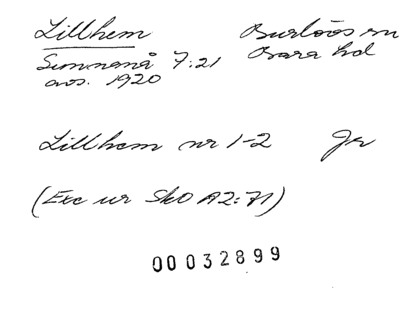 Lillhem Burlövs sn
Sunnanå 7:21 Bara hd
avs. 1920
Lillhem nr 1-2 Jr
(Exc ur SkO A2:71)
00032899